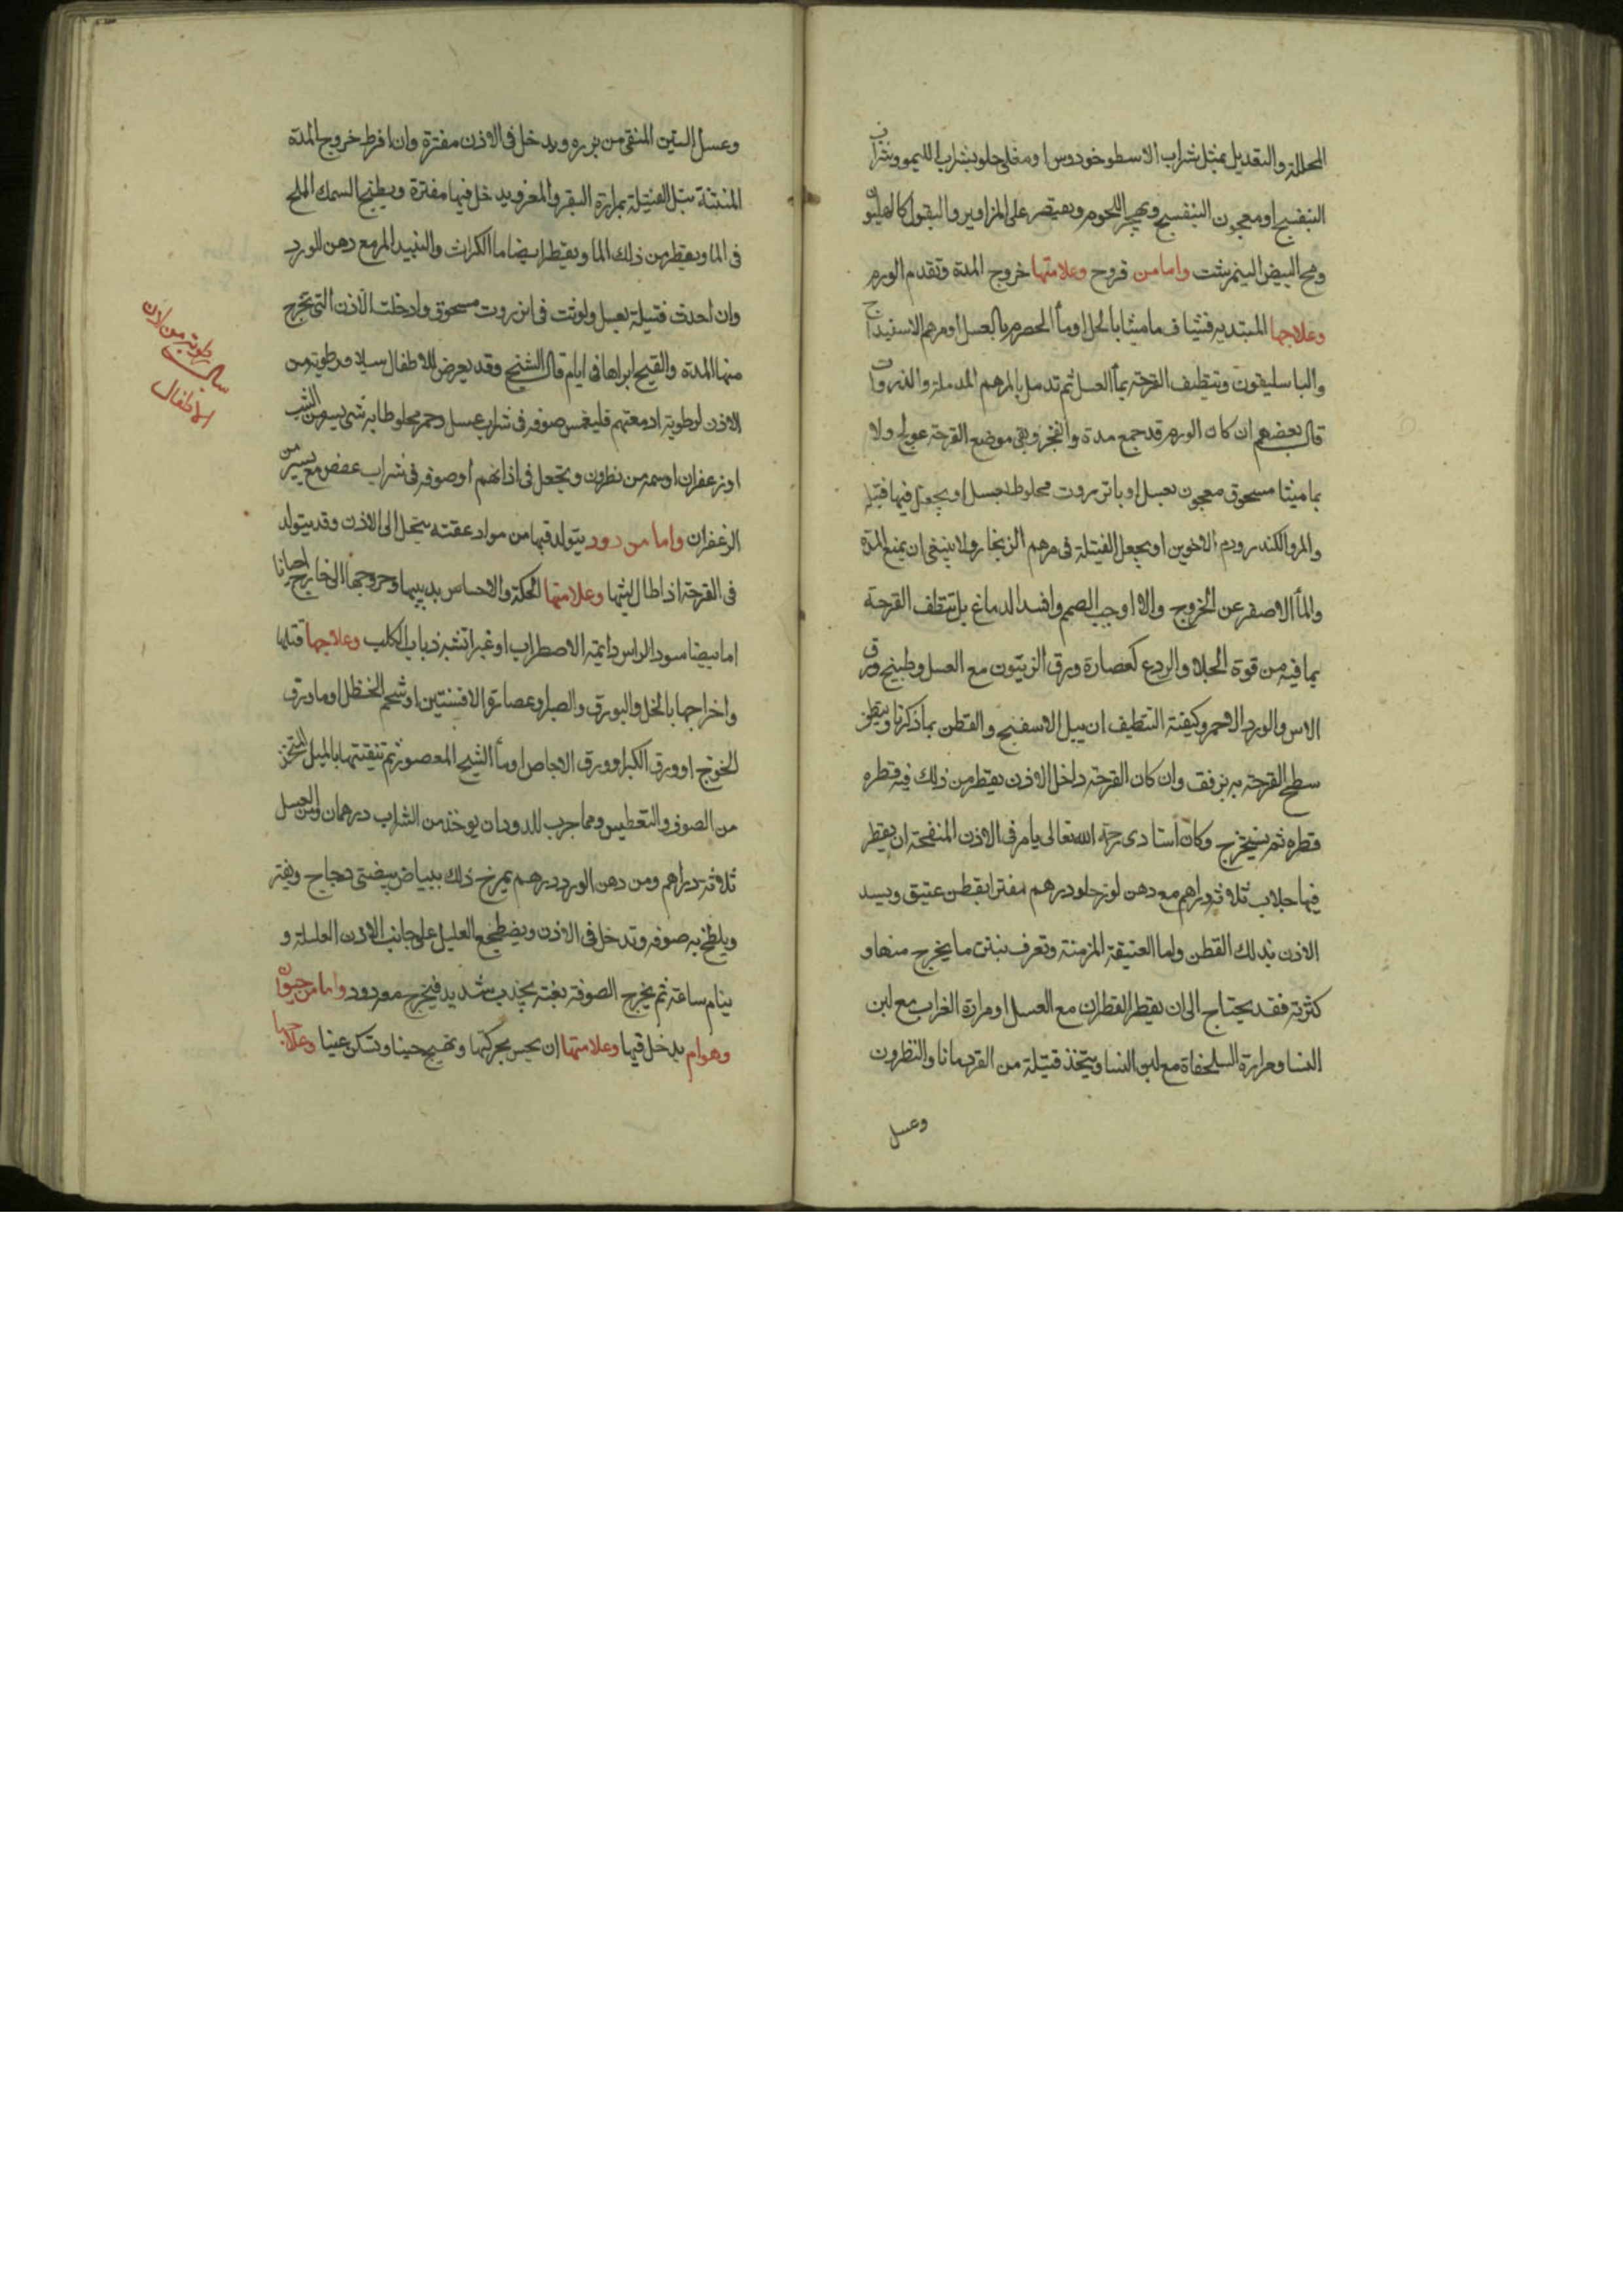 المحللة والتعديل بمثل شراب الاسطوخودوس او مغلى حلو بشراب الليمو وشراب
البنفسج او معجون البنفسج ويهجر اللحوم ويقتصر على المزاوير والبقول كالهليون
ومح البيض النيمرشت واما من قروح وعلامتها خروج المدة وتقدم الورم
وعلاجها المبتديه فشياف ماميثا بالخل او ماء الحصرم بالعسل او مرهم الاسفيداج
والباسليقون وتنظيف القرحة بماء العسل ثم تدمل بالمرهم المدملة والذرورات
قال بعضهم ان كان الورم قد جمع مدة وانفجر وبقى موضع القرحة عولج ولا
بماميثا مسحوق معجون بعسل او بانزروت مخلوط بعسل او يجعل فيها فتيلة
والمر والكندر ودم الاخوين او يجعل الفتيلة فى مرهم الزنجار ولا ينبغى ان يمنع المدة
والماء الاصفر عن الخروج والا اوجب الصمم وافسد الدماغ بل تنظف القرحة
بما فيه من قوة الجلا والردع كعصارة ورق الزيتون مع العسل وطبيخ ورق
الاس والورد الاحمر وكيفية التنظيف ان يبل الاسفنج والقطن بما ذكرنا وينظف
سطح القرحة به برفق وان كان القرحة داخل الاذن يقطر من ذلك فيه قطره
قطره ثم يستخرج وكان استادى رحمه الله تعالى يامر فى الاذن المنفتحة ان يقطر
فيها جلاب ثلاثة دراهم مع دهن لوز حلو درهم مفترا بقطن عتيق ويسد
الاذن بذلك القطن واما العتيقة المزمنة وتعرف بنتن ما يخرج منها و
كثرته فقد يحتاج الى ان يقطر القطران مع العسل او مرارة الغراب مع لبن
النسا ومرارة السلحفاة مع لبن النسا ويتخذ فتيلة من القردمانا والنطرون
وعسل
وعسل التين المنقى من بزره ويدخل فى الاذن مفترة وان افرط خروج المدة
المنتنة تبتل الفتيلة بمرارة البقر والمعز ويدخل فيها مفترة ويطبخ السمك الملح
فى الما ويقطر من ذلك الما ويقطر ايضا ما الكراث والنبيد المر مع دهن الورد
وان اخدت فتيلة بعسل ولوثت فى انزروت مسحوق وادخلت الاذن التى تخرج
منها المدة والقيح ابراها فى ايام قال الشيخ وقد يعرض للاطفال سيلان رطوبة من
الاذن لرطوبة ادمغتهم فليغمس صوفه فى شراب عسل وخمر مخلوطا به شى يسير من الشب
او زعفران او من نطرون ويجعل فى اذانهم او صوفه فى شراب عفص مع يسير من
الزعفران واما من دود يتولد فيها من مواد عفنه يتحل الى الاذن وقد يتولد
فى القرحة اذا طال لبثها وعلامتها الحكة والاحساس بدبيبها وخروجها الى خارج احيانا
اما بيضا سود الراس دايمة الاضطراب او غبرا تشبه ذباب الكلب وعلاجها قتلها
واخراجها بالخل والبورق والصبر او عصارة الافسنتين او شحم الحنظل او ما ورق
الخوخ او ورق الكبر او ورق الاجاص او ماء الشيح المعصور ثم تنقيتها بالميل المتخذ
من الصوف والتعطيس ومما جرب للدود ان يوخذ من الشراب درهمان ومن العسل
ثلاثة دراهم ومن دهن الورد درهم يمزج ذلك ببياض بيضتى دجاج ويفتر
ويلطخ به صوفه وتدخل فى الاذن ويضطجع العليل على جانب الاذن العليلة و
ينام ساعة ثم يخرج الصوفة بغتة بجذب شديد فيخرج معه دود واما من حيوان
وهوام يدخل فيها وعلامتها ان يحس بحركتها وتهيج حينا وتسكن حينا وعلاجها
سيالة رطوبة من اذن
الاطفال